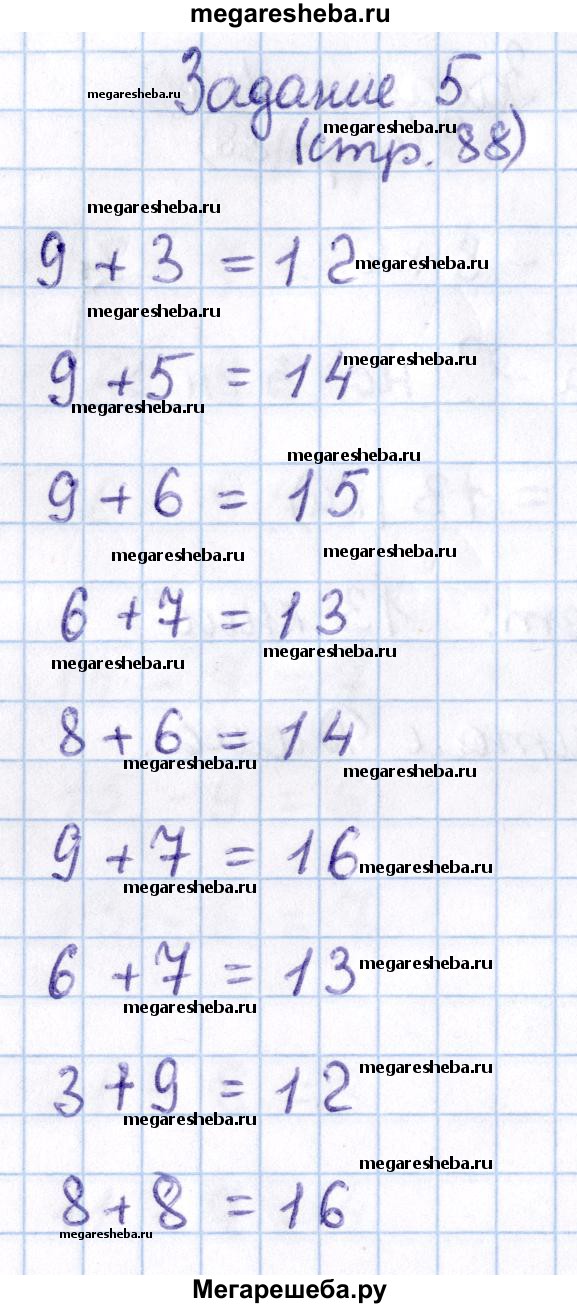 megaresheba.ru
megaresheba.ru Задание 5
megaresheba.ru
(стр. 88)
megaresheba.ru
9 + 3 = 12 megaresheba.ru
megaresheba.ru
9 + 5 = 14 megaresheba.ru
megaresheba.ru
megaresheba.ru
9 + 6 = 15
megaresheba.ru megaresheba.ru
6 + 7 = 13
megaresheba.ru megaresheba.ru
8 + 6 = 14
megaresheba.ru megaresheba.ru
9 + 7 = 16 megaresheba.ru
megaresheba.ru
6 + 7 = 13 megaresheba.ru
megaresheba.ru
3 + 9 = 12 megaresheba.ru
megaresheba.ru
megaresheba.ru
8 + 8 = 16
megaresheba.ru
Мегарешеба.ру